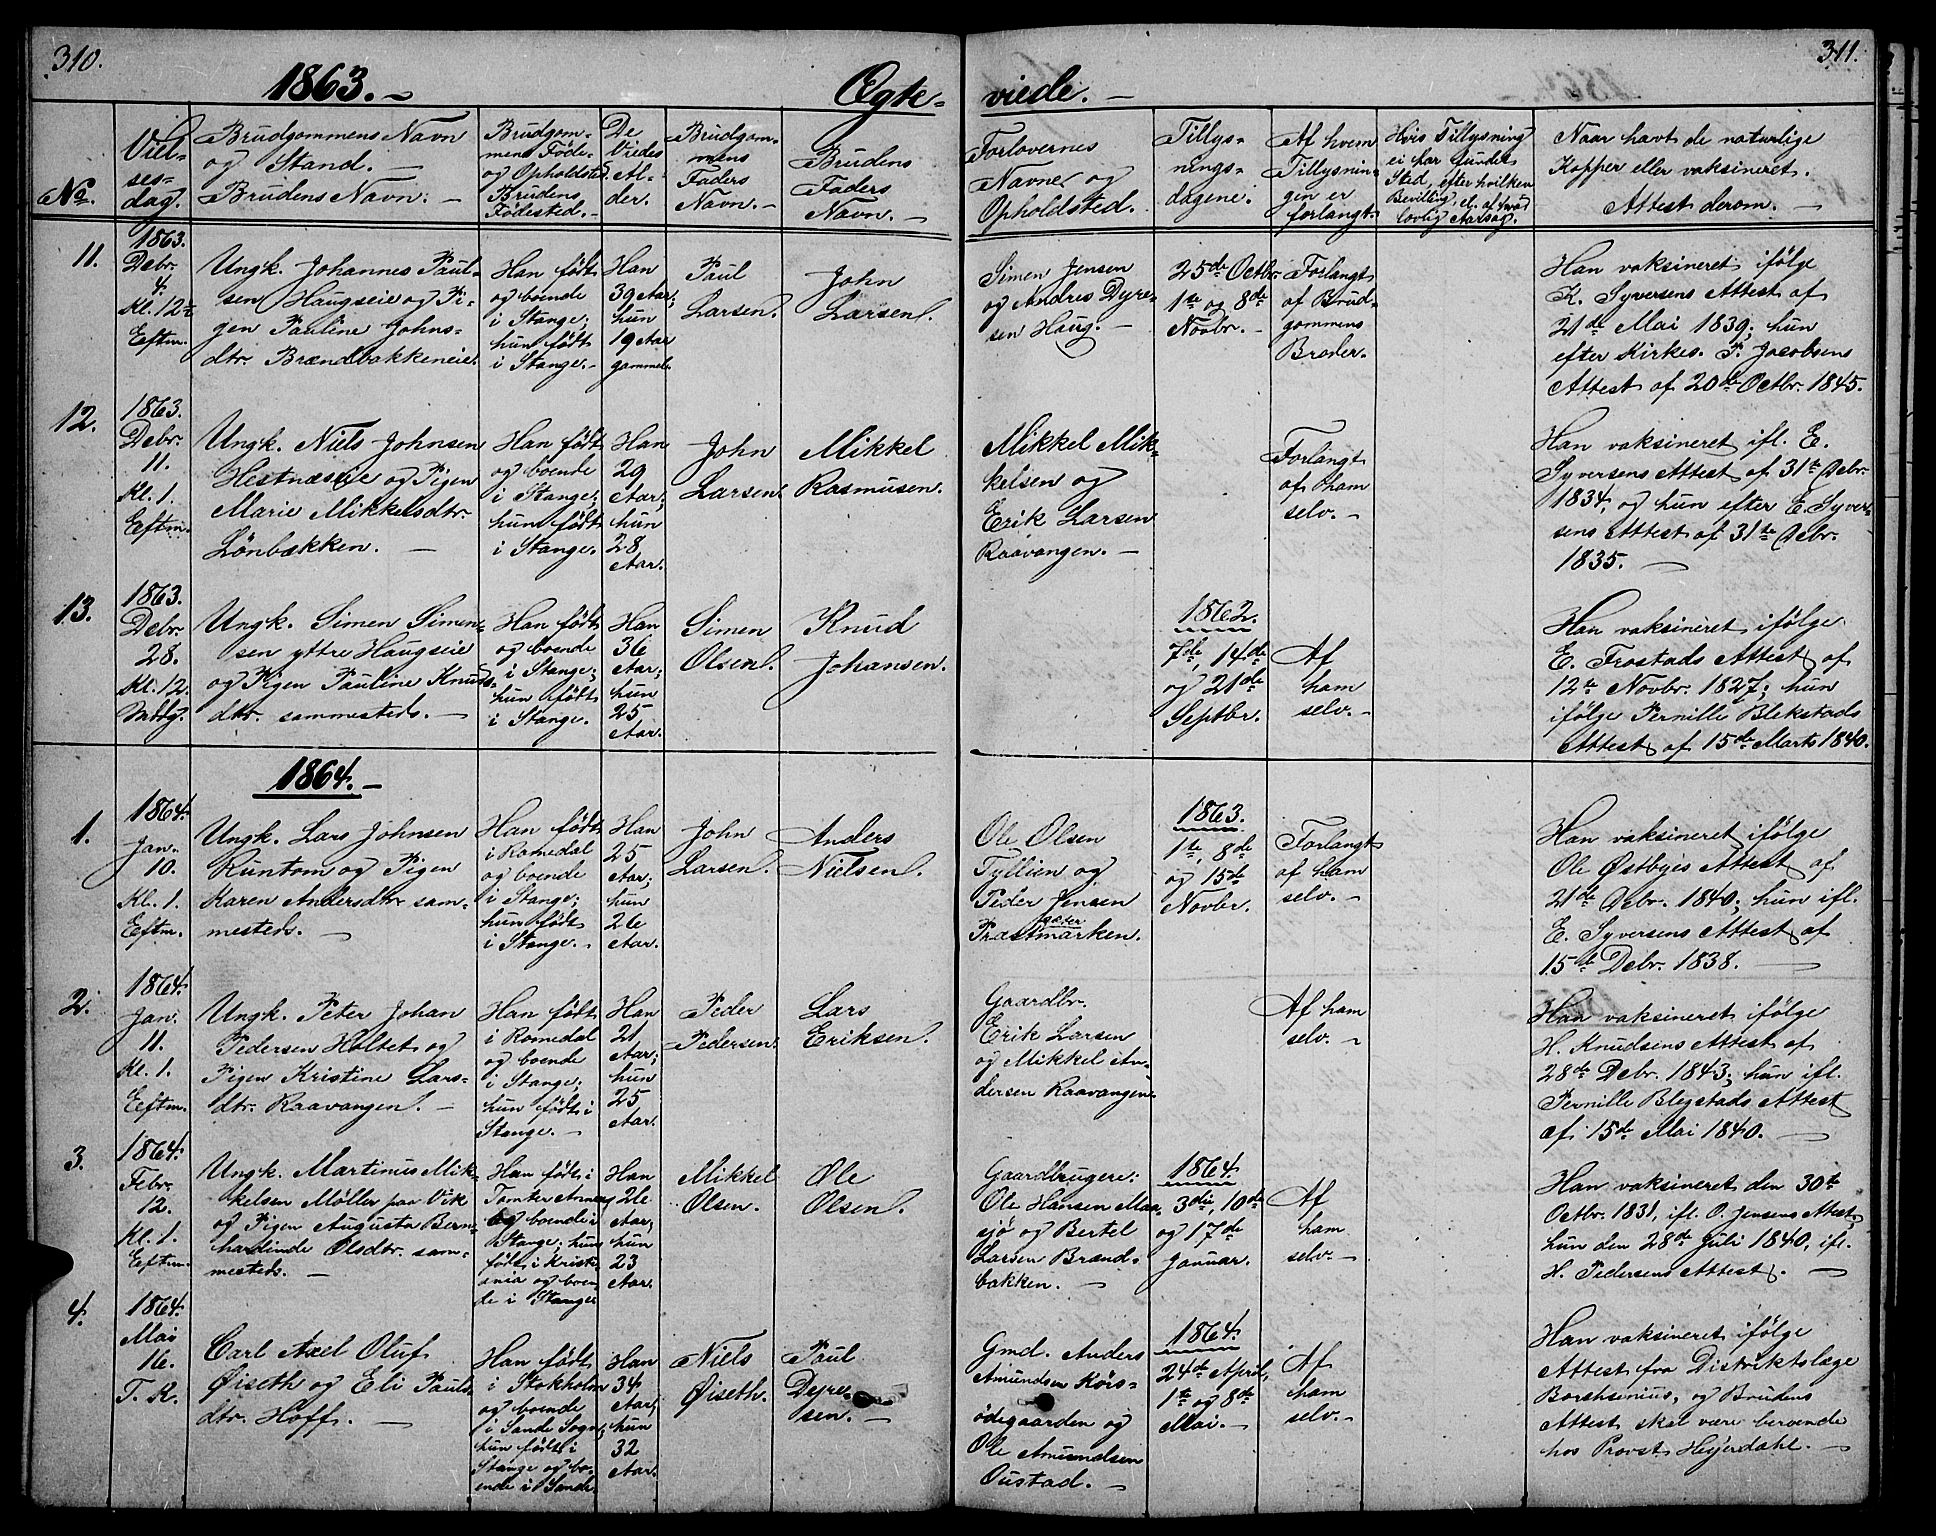 310.
1863.
Ægte-
Viel-
ses-
dag.
No.
Brudgommens Navn
og Stand. —
Brudens Navn. —
Brudgom-
mens Føde-
og Opholdsted.
Brudens
Fødested. —
De
Viedes
Al-
der.
Brudgom-
mens
Faders
Navn. —
Brudens
Faders
Navn. —
11.
1863.
Debr.
4.
Kl. 12½
Eftm.
Ungk. Johannes Paul-
sen Haugseie og Pi-
gen Pauline Johns-
dtr. Brændbakkeneie.
Han født
og boende
i Stange;
hun født
i Stange. —
Han
39 Aar;
hun
19 Aar
gammel.
Paul
Larsen.
John
Larsen.
12.
1863.
Debr.
11.
Kl. 1.
Eeftm.
Ungk. Niels Johnsen
Hestnæseie og Pigen
Marie Mikkelsdtr.
Lönbækken. —
Han født
og boende
i Stange;
hun født
i Stange.
Han
29
Aar;
hun
28
Aar.
John
Larsen.
Mikkel
Rasmusen.
13.
1863.
Debr.
28.
Kl. 12.
Mddg.
Ungk. Simen Simen-
sen yttre Haugseie
og Pigen Pauline Knuds-
dtr. sammesteds. —
Han født
og boende
i Stange;
hun født
i Stange.
Han
36
Aar;
hun
25
Aar.
Simen
Olsen.
Knud
Johansen.
1864. —
1.
1864.
Jan.
10.
Kl. 1.
Eftm.
Ungk. Lars Johnsen
Runtom og Pigen
Karen Andersdtr. sam-
mesteds. —
Han født
i Romedal
og boende
i Stange;
hun født
i Stange. —
Han
25
Aar;
hun
26
Aar.
John
Larsen.
Anders
Nielsen.
2.
1864.
Jan.
11.
Kl. 1.
Eeftm.
Ungk. Peter Johan
Pedersen Holtet og
Pigen Kristine Lars-
dtr. Raavangen. —
Han født
i Romedal
og boende
i Stange;
hun født i
Stange. —
Han
21
Aar;
hun
25
Aar.
Peder
Pedersen.
Lars
Eriksen.
3.
1864.
Febr.
12.
Kl. 1.
Eftm.
Ungk. Martinus Mik-
kelsen Møller paa Vik
og Pigen Augusta Bern-
hardinde Olsdtr. sam-
mesteds. —
Han født i
og boende i
Stange; hun
født i Kristi-
ania og boen-
de i Stange
Han
26
Aar;
hun
23
Aar.
Mikkel
Olsen.
Ole
Olsen.
4.
1864.
Mai
16.
T. K.
Carl Axel Oluf
Øiseth og Eli Pauls-
dtr. Hoff. —
Han født
i Stokholm
og boende
i Sande Sogn;
hun født i
Stange og bo-
ende i Sande.
Han
34
Aar;
hun
32
Aar.
Niels
Øiseth.
Paul
Dyre-
sen. —
311.
viede. —
Forlovernes
Navne og
Opholdsted.
Tillys-
nings-
dagene.
Af hvem
Tillysnin-
gen er
forlangt
Hvis Tillysning
ei har fundet
Sted, efter hvilken
Bevilling, el. af hvad
lovlig Aarsag.
Naar havt de naturlige
Kopper eller vaksineret.
Attest derom. —
Simen Jensen
og Andres Dyre-
sen Haug. —
25de Octbr.
1te og 8de
Novbr. —
Forlangt
af Brud-
gommens
Broder.
Han vaksineret ifølge
K. Syversens Attest af
21de Mai 1839; hun
efter Kirkes. P. Jacobsens
Attest af 20de Octbr. 1845.
Mikkel Mik-
kelsen og
Erik Larsen
Raavangen. —
Forlangt
af ham
selv. —
Han vaksineret ifl. E.
Syversens Attest af 31te Debr.
1834, og hun efter E. Syver-
sens Attest af 31te Debr.
1835. —
1862.
7de, 14de
og 21de
Septbr.
Af
ham
selv. —
Han vaksineret ifølge
E. Frostads Attest af
12te Novbr. 1827; hun
ifølge Pernille Blekstads
Attest af 15de Marts 1840.
Ole Olsen
Tyllien og
Peder Jensen
sæter
Præstmarken.
1863.
1te, 8de
og 15de
Novbr.
Forlangt
af ham
selv. —
Han vaksineret ifølge
Ole Østbyes Attest af
21de Debr. 1840; hun ifl.
E. Syversens Attest af
15de Debr. 1838. —
Gaardbr.
Erik Larsen
og Mikkel An-
dersen Raavangen.
Af ham
selv. —
Han vaksineret ifølge
H. Knudsens Attest af
28de Debr. 1843; hun ifl.
Pernille Blegstads Attest
af 15de Mai 1840. —
Gaardbrugere:
Ole Hansen
sjø og Bertel
Larsen Brænd-
bakken. —
1864.
3die, 10de
og 17de
Januar.
Af
ham
selv. —
Han vaksineret den 30te
Octbr. 1831, ifl. O. Jensens Attest,
hun den 28de Juli 1840, ifl.
H. Pedersens Attest. —
Gmd. Anders
Amundsen Körs-
ödegaarden og
Ole Amundsen
Oustad. —
1864.
24de April,
1te og 8de
Mai. —
Af
ham
selv. —
Han vaksineret ifølge
Attest fra Distriktslæge
Borchsenius, og Brudens
Attest skal være beroende
hos Provst Heyerdahl. —